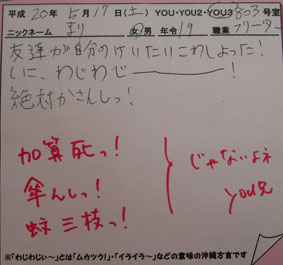 平成20年5月17日(土) YOU・YOU2・YOU3 803号室
ニックネーム まり 女・男 年令19 職業フリーター
友達が自分のけいたいこわしよった!
しに、わじわじ────!
絶対かさんしっ!
加算死っ!
傘んしっ!
蚊三枝っ!
じゃないよネ
you兄
※「わじわじぃ~」とは「ムカツク!」・「イライラ~」などの意味の沖縄方言です